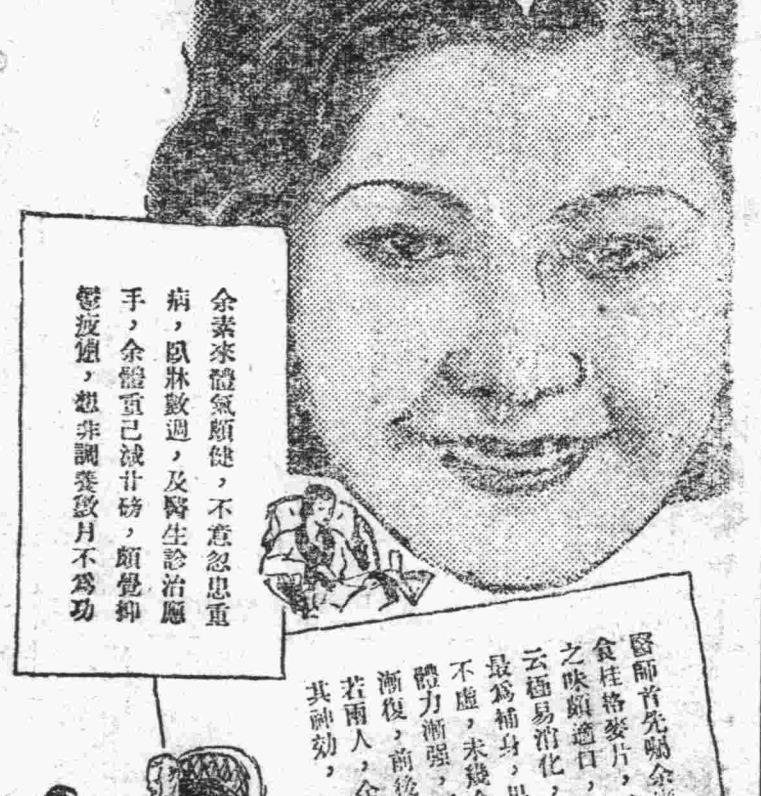 余素來體氣頗健，不意忽患重
病，臥牀數週，及醫生診治應
手，余體重已減廿磅，頗覺抑
鬱疲憊，想非調養數月不爲功
醫師首先囑余
食桂格麥片，
之味頗適口，
云極易消化，
最爲補身，
不虛，未幾
體力漸强，
漸復，前後
若兩人，
其神効，